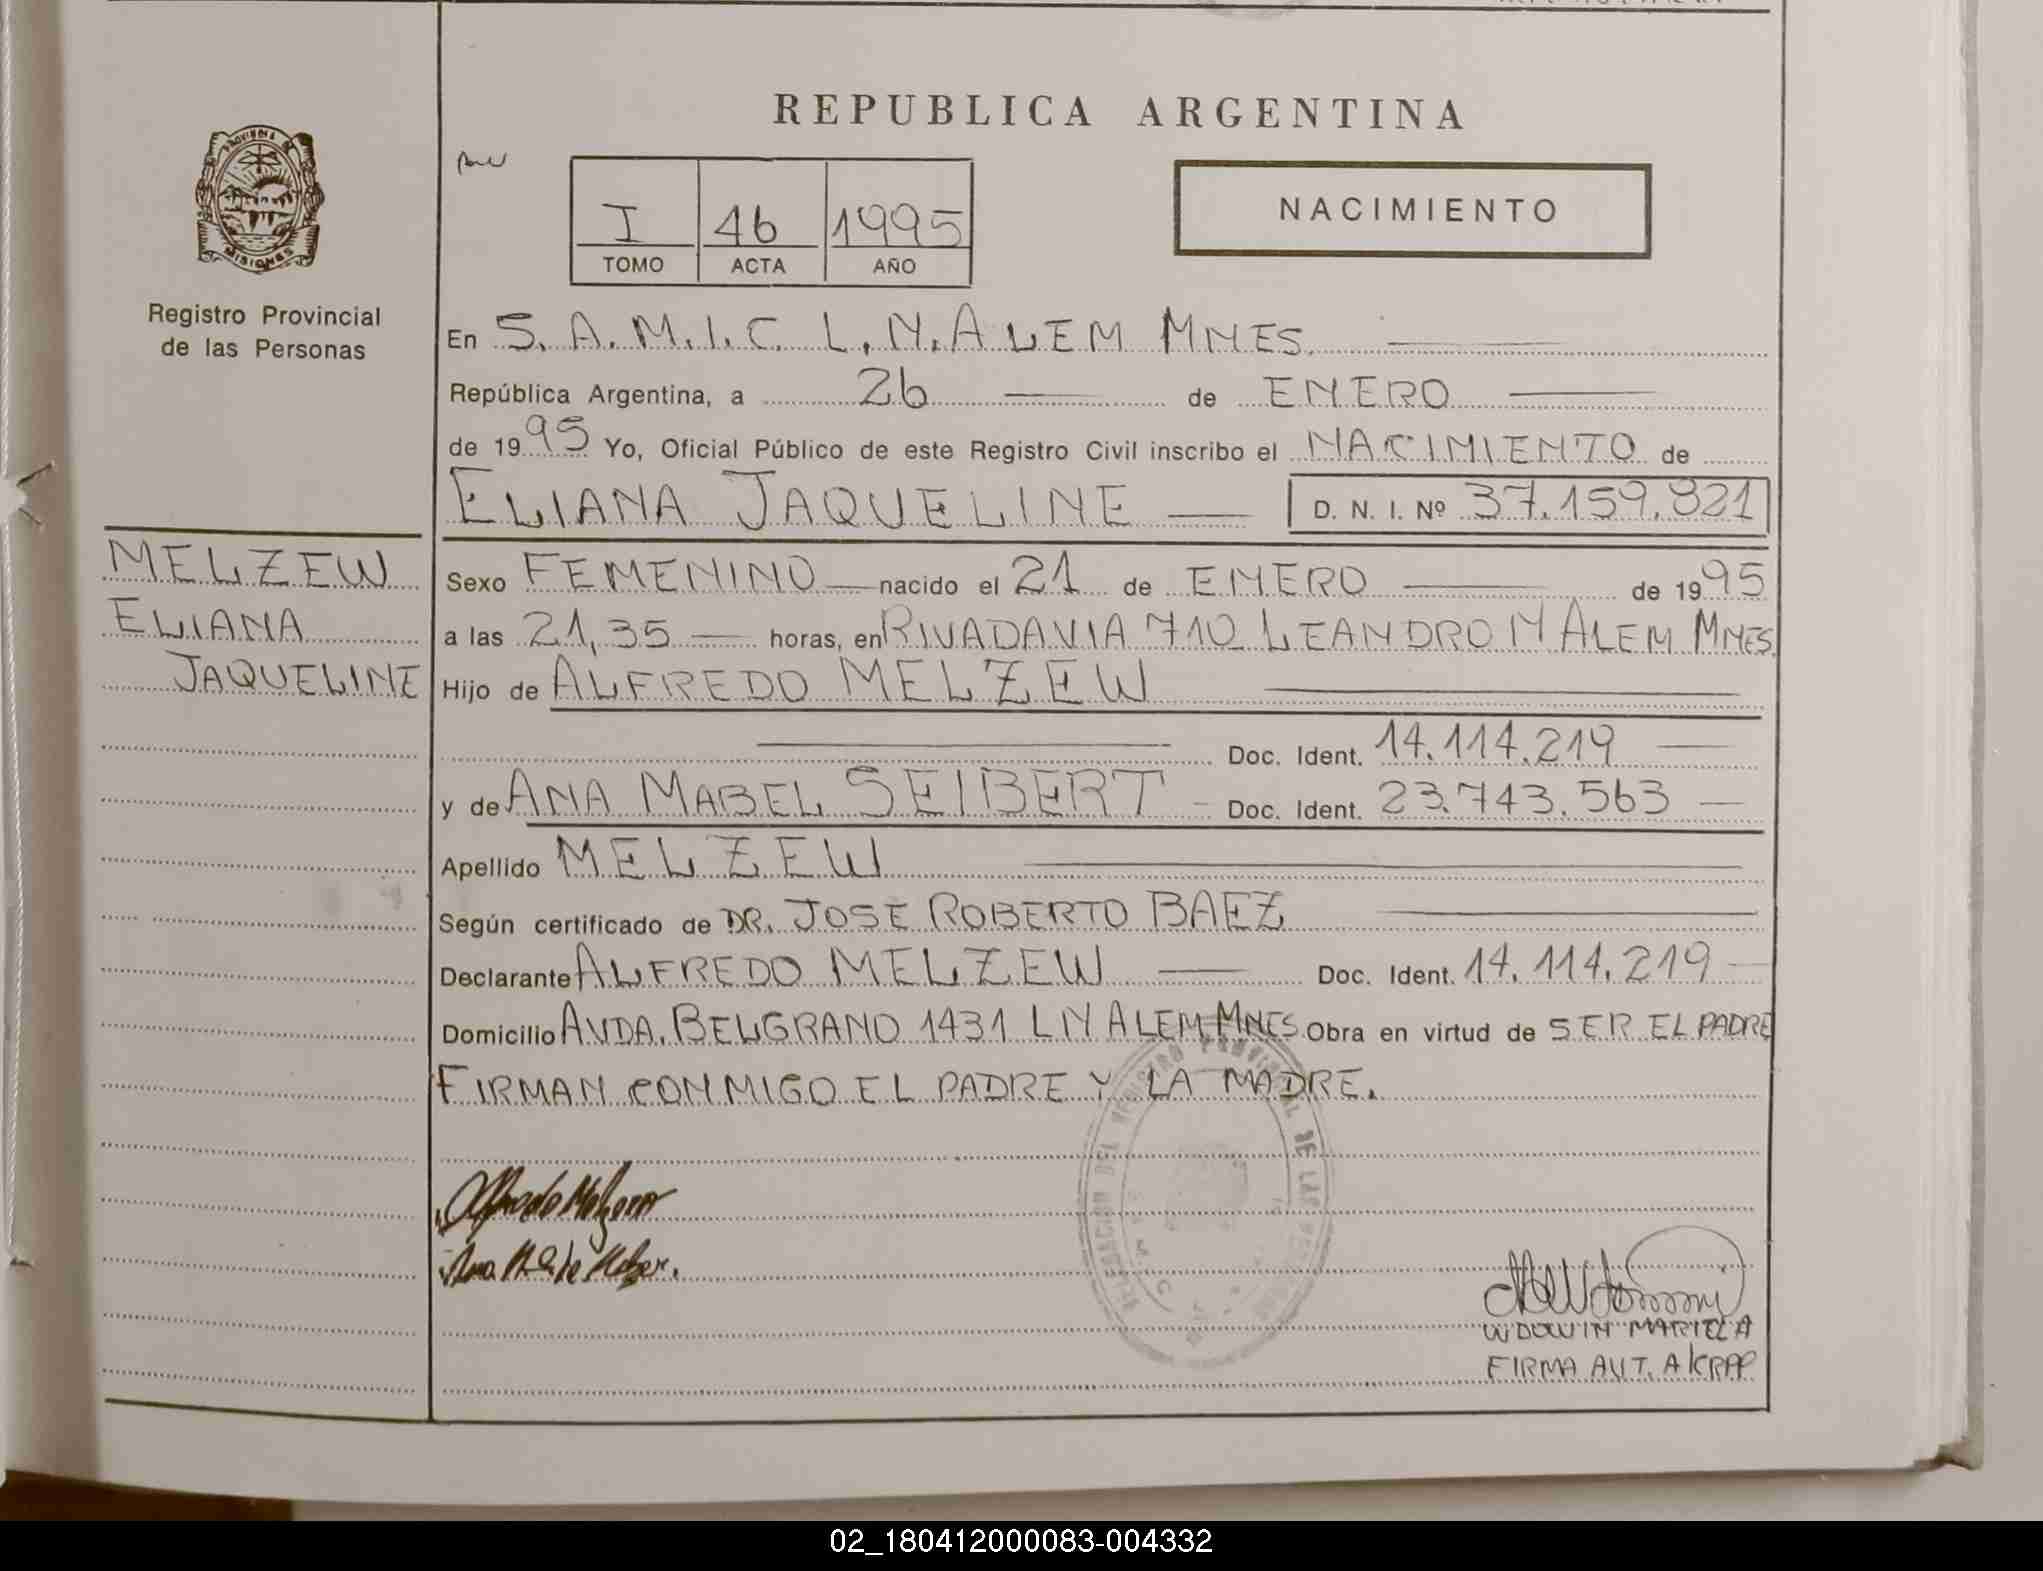 REPUBLICA ARGENTINA
PROVINCIA DE
MISIONES
Registro Provincial
de las Personas
I 46 1995
TOMO ACTA AÑO
NACIMIENTO
En S.A.M.I.C. L.N.ALEM MNES.
República Argentina, a 26 de ENERO
de 1995 Yo, Oficial Público de este Registro Civil inscribo el NACIMIENTO de
ELIANA JAQUELINE D. N. I. Nº 37.159.821
MELZEW
ELIANA
JAQUELINE
Sexo FEMENINO nacido el 21 de ENERO de 1995
a las 21,35 horas, en RIVADAVIA 710 LEANDRO N ALEM MNES.
Hijo de ALFREDO MELZEW
Doc. Ident. 14.114.219
y de ANA MABEL SEIBERT Doc. Ident. 23.743.563
Apellido MELZEW
Según certificado de DR. JOSE ROBERTO BAEZ
Declarante ALFREDO MELZEW Doc. Ident. 14.114.219
Domicilio AVDA. BELGRANO 1431 LN ALEM MNES. Obra en virtud de SER EL PADRE
FIRMAN CONMIGO EL PADRE Y LA MADRE.
DELEGACION DEL REGISTRO PROVINCIAL DE LAS
WDOWIN MARIELA
FIRMA AUT. A/C RPP
02_180412000083-004332